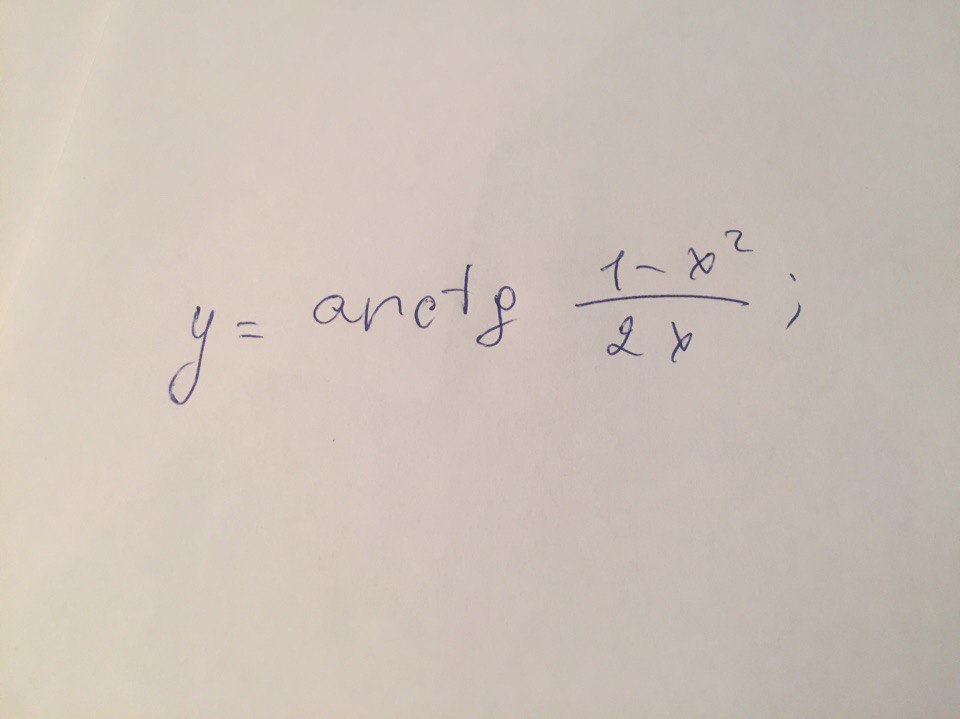 y = arctg \frac{1-x^2}{2x};